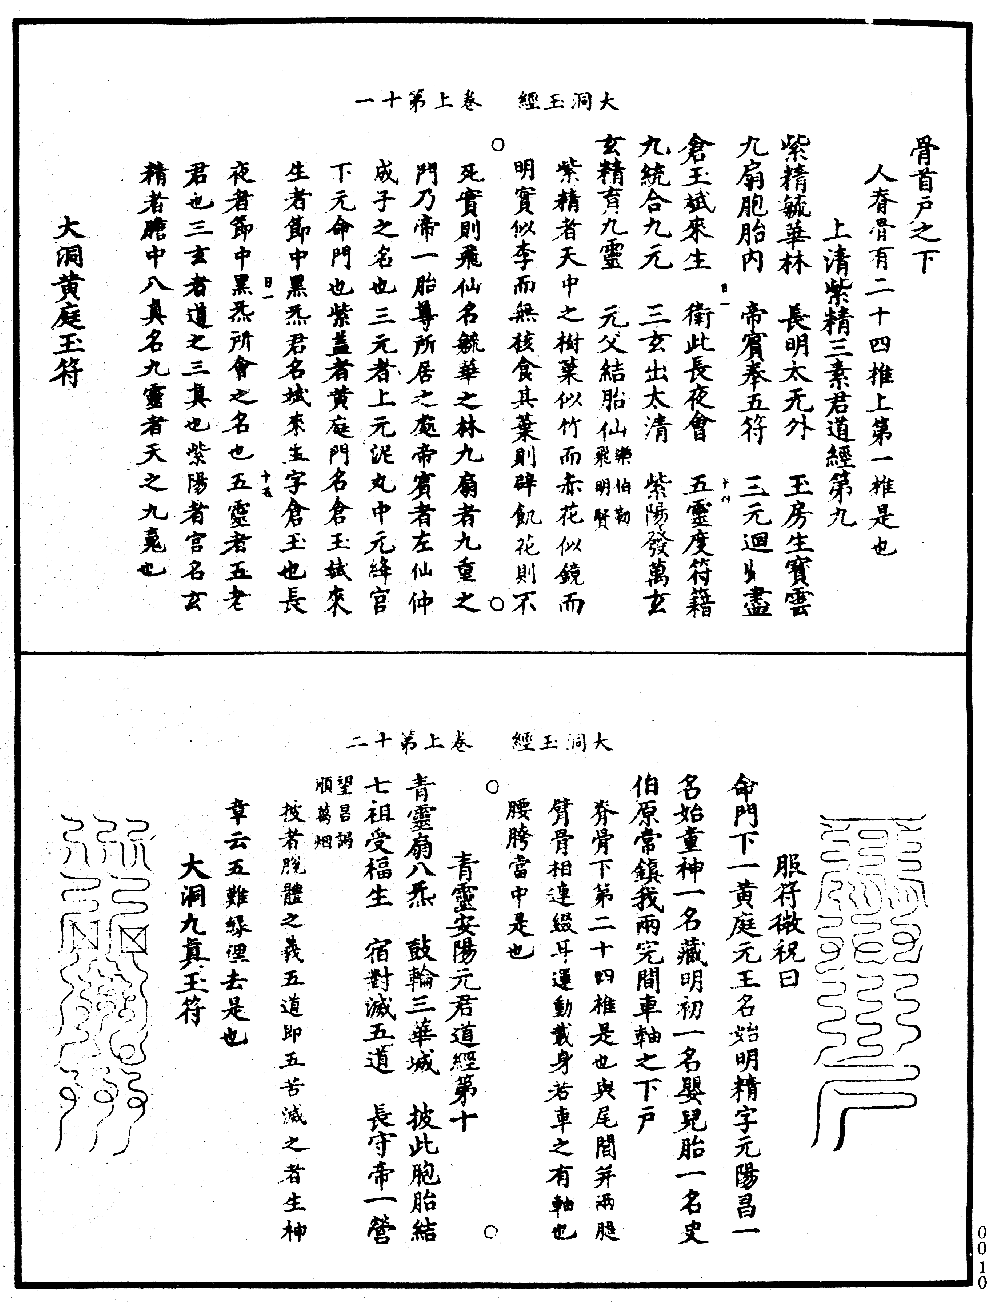 大洞玉經　卷上第十一
骨首戶之下
人脊骨有二十四椎上第一椎是也
上清紫精三素君道經第九
紫精毓華林　長明太无外　玉房生寶雲
九扇胞胎內　帝賓奉五符　三元迴盡
倉玉斌來生　衛此長夜會　五靈度符籍
九統合九元　三玄出太清　紫陽發萬玄
玄精育九靈　元父結胎仙　樂伯勤
飛明賢
紫精者天中之樹葉似竹而赤花似鏡而
明實似李而無核食其葉則辟飢花則不
死實則飛仙名毓華之林九扇者九重之
門乃帝一胎尊所居之處帝賓者左仙仲
成子之名也三元者上元泥丸中元絳宮
下元命門也紫蓋者黃庭門名倉玉斌來
生者節中黑炁君名斌來生字倉玉也長
夜者節中黑炁所會之名也五靈者五老
君也三玄者道之三真也紫陽者宮名玄
精者膽中八真名九靈者天之九冤也
日一
十八
日一
十五
大洞黃庭玉符
大洞玉經　卷上第十二
服符微祝曰
命門下一黃庭元王名始明精字元陽昌一
名始重神一名藏明初一名嬰兒胎一名史
伯原常鎮我兩穴間車軸之下戶
脊骨下第二十四椎是也與尾閭并兩腿
臂骨相連綴耳運動載身若車之有軸也
腰胯當中是也
青靈安陽元君道經第十
青靈扇八炁　鼓輪三華城　披此胞胎結
七祖受福生　宿對滅五道　長守帝一營
望昌調
順萬烟
披者脫體之義五道即五苦滅之者生神
章云五難緣涅去是也
大洞九真玉符
0010